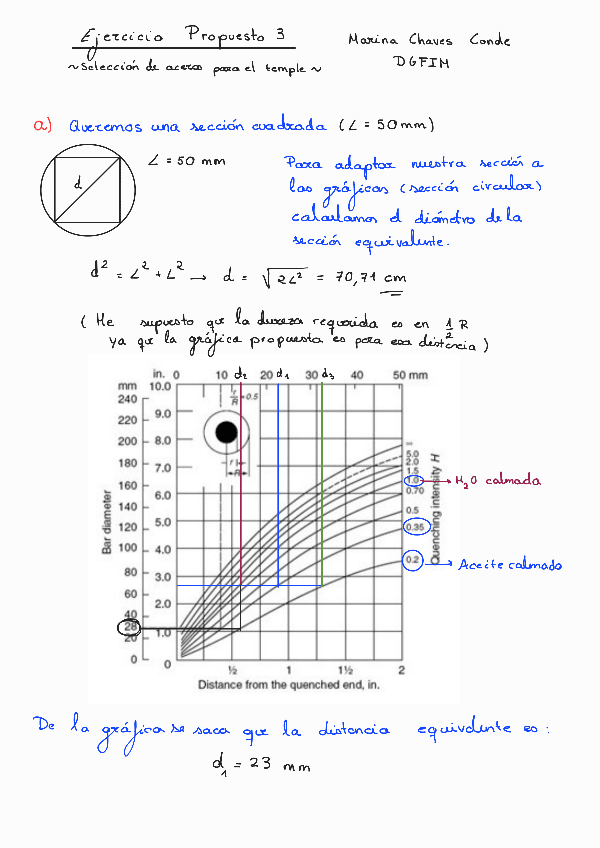 Ejercicio Propuesto 3
Marina Chaves Conde
~ Selección de aceros para el temple ~
DGFIM
a) Queremos una sección cuadrada (L = 50 mm)
d
L = 50 mm
Para adaptar nuestra sección a
las gráficas (sección circular)
calculamos el diámetro de la
sección equivalente.
d² = L² + L² → d = √2L² = 70,71 cm
(He supuesto que la dureza requerida es en 1/2 R
ya que la gráfica propuesta es para esa distancia)
in. 0 10 d2 20 d1 30 d3 40 50 mm
mm 10.0
240
9.0
220
200 8.0
180 7.0
160
6.0
140
5.0
120
100 4.0
80 3.0
60
2.0
40
28
20 1.0
0 0
r/R = 0.5
r
R
Bar diameter
∞
5.0
2.0
1.5
1.0 → H2O calmada
0.70
0.5
0.35
0.2 → Aceite calmado
Quenching intensity H
½ 1 1½ 2
Distance from the quenched end, in.
De la gráfica se saca que la distancia equivalente es:
d1 = 23 mm